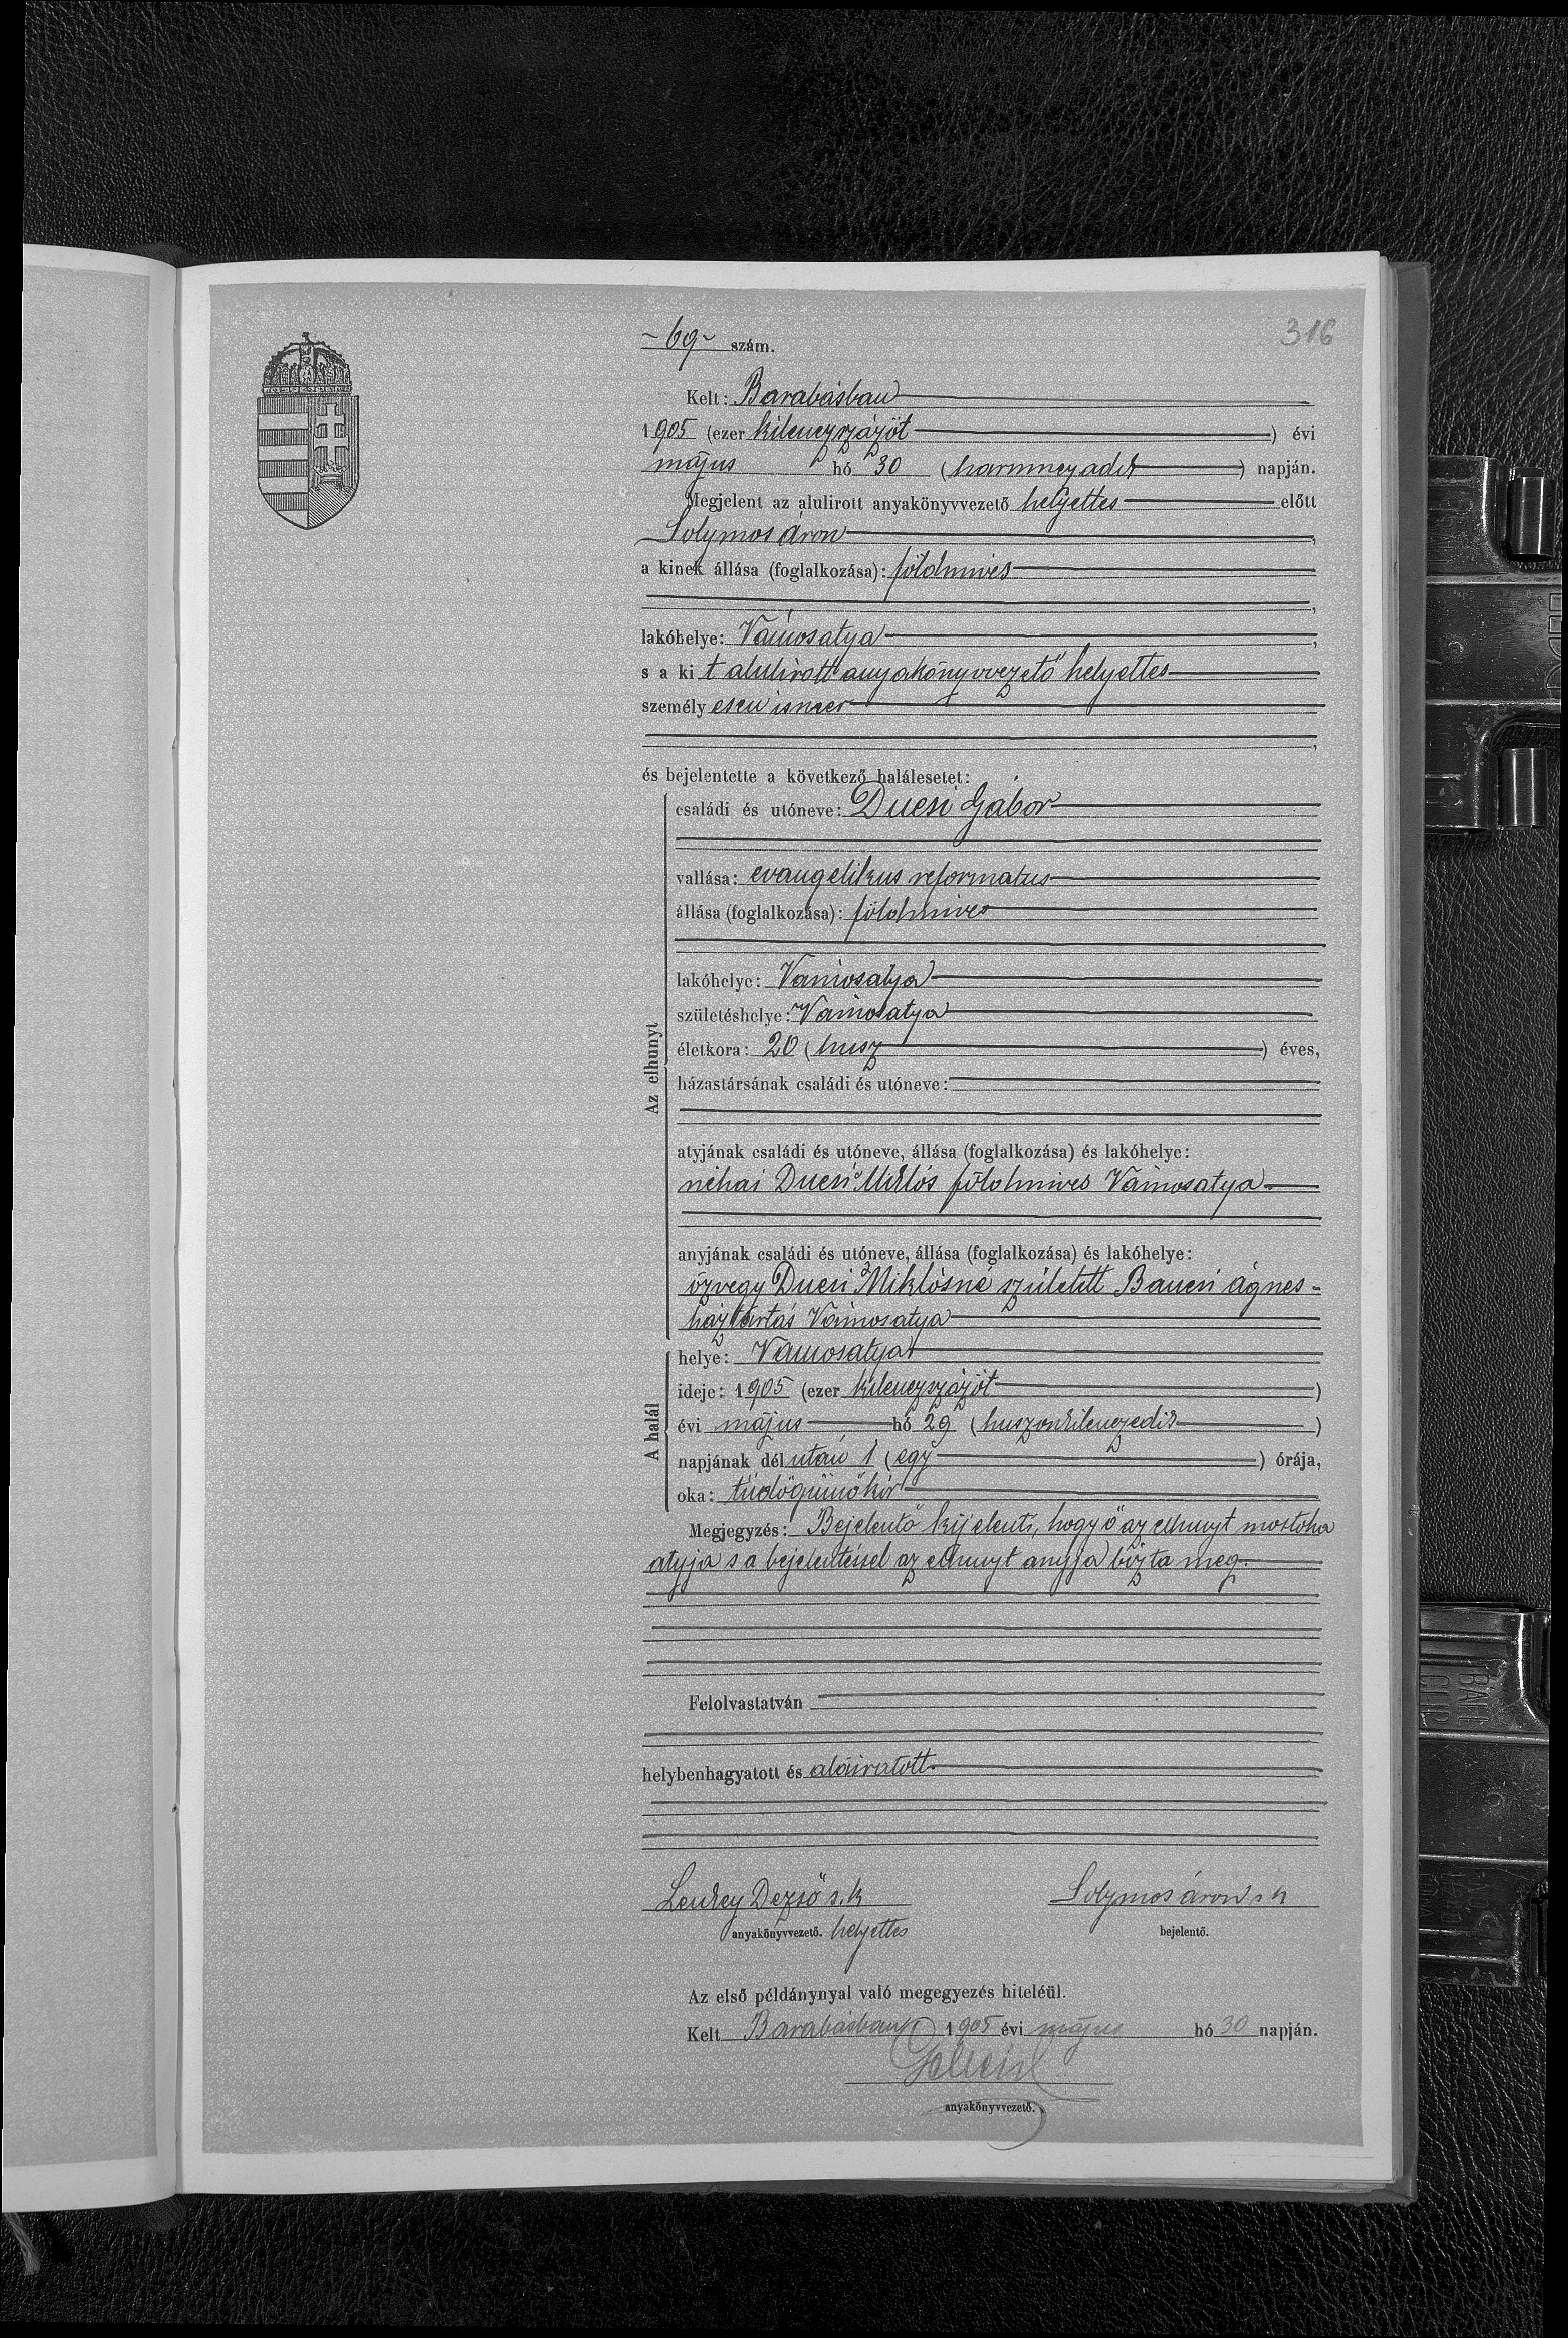 316
- 69 - szám.
Kelt: Barabásban
1905 (ezer kilenczszázöt) évi
május hó 30 (harminczadik) napján.
Megjelent az alulirott anyakönyvvezető helyettes előtt
Solymos Áron,
a kinek állása (foglalkozása): földmives
,
lakóhelye: Vámosatya,
s a kit alulirott anyakönyvvezető helyettes
személyesen ismer
,
és bejelentette a következő halálesetet:
Az elhunyt
családi és utóneve: Ducsi Gábor
vallása: evangelikus reformatus
állása (foglalkozása): földmives
lakóhelye: Vámosatya
születéshelye: Vámosatya
életkora: 20 (husz) éves,
házastársának családi és utóneve:
atyjának családi és utóneve, állása (foglalkozása) és lakóhelye:
néhai Ducsi Miklós földmives Vámosatya
anyjának családi és utóneve, állása (foglalkozása) és lakóhelye:
özvegy Ducsi Miklósné született Ágnes -
háztartás Vámosatya
A halál
helye: Vámosatya
ideje: 1905 (ezer kilenczszázöt)
évi május hó 29 (huszonkilenczedik)
napjának dél után 1 (egy) órája,
oka: tüdőgümőkór
Megjegyzés: Bejelentő kijelenti, hogy ő az elhunyt mostoha
atyja s a bejelentéssel az elhunyt anyja bizta meg.
Felolvastatván
helybenhagyatott és aláiratott.
Dezső s. k. Solymos Áron s. k.
anyakönyvvezető. helyettes bejelentő.
Az első példánynyal való megegyezés hiteléül.
Kelt Barabásban 1905 évi május hó 30 napján.
anyakönyvvezető.